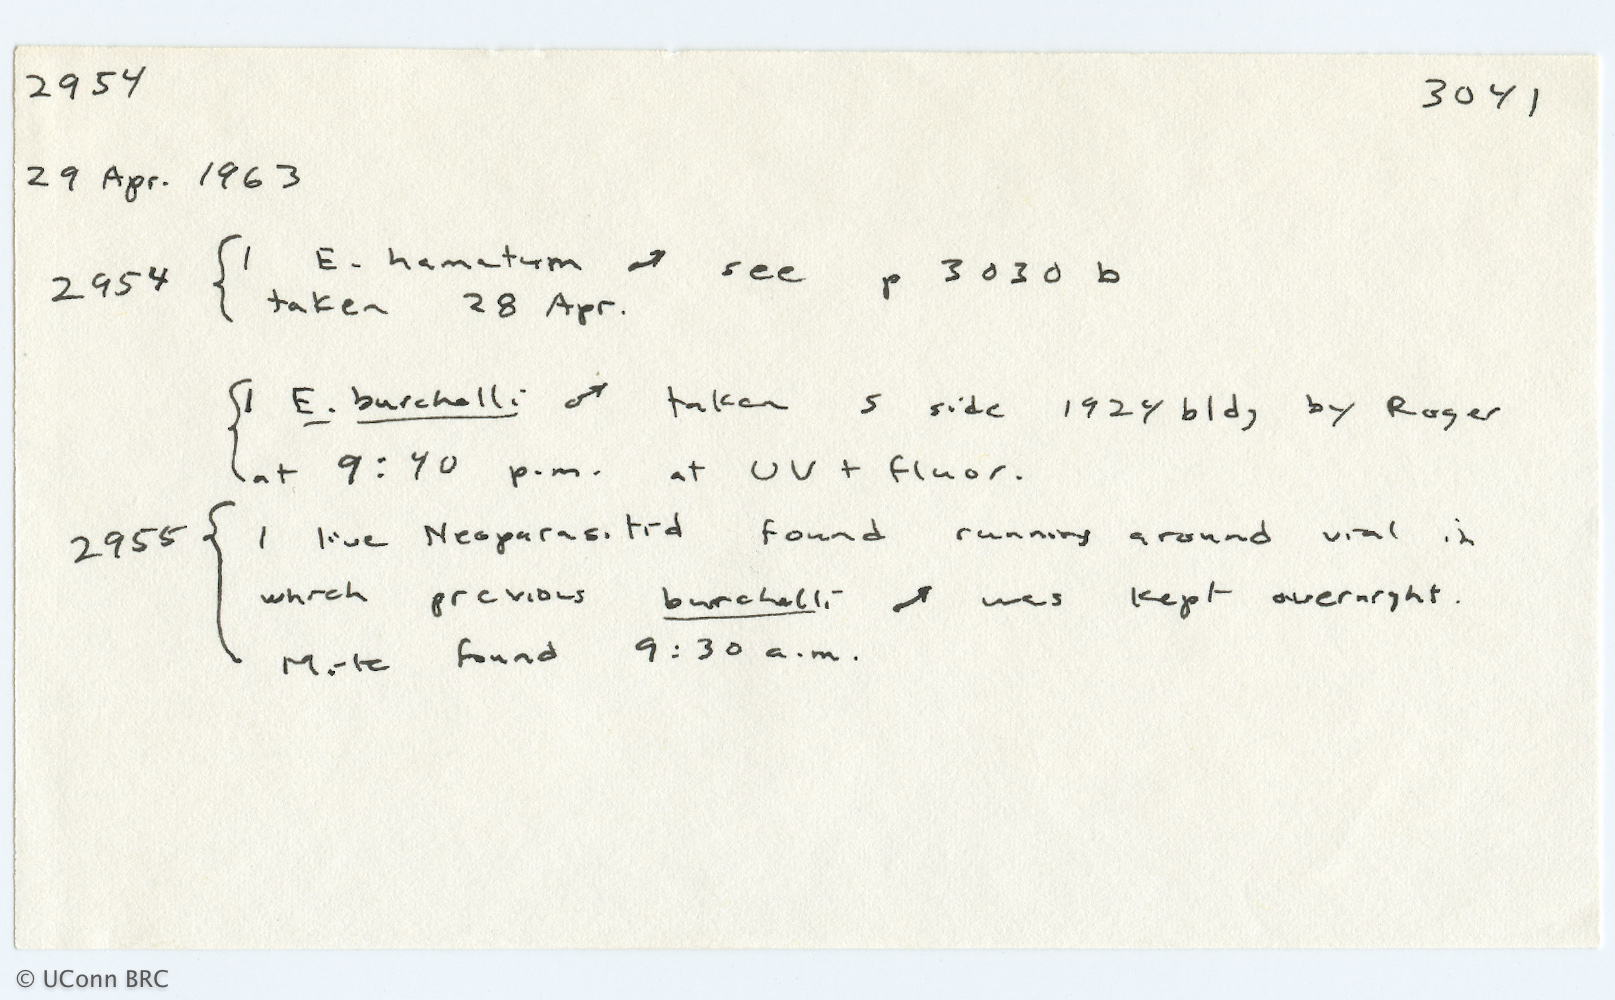 2954 3041
29 Apr. 1963
2954 { 1 E. hamatum ♂ see p 3030 b
taken 28 Apr.
{ 1 E. burchelli ♂ taken S side 1924 bldg by Roger
at 9:40 p.m. at UV + fluor.
2955 { 1 live Neoparasitid found running around vial in
which previous burchelli ♂ was kept overnight.
Mite found 9:30 a.m.
© UConn BRC